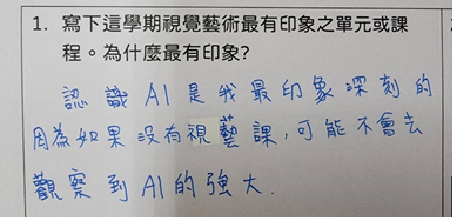 1. 寫下這學期視覺藝術最有印象之單元或課
程。為什麼最有印象?
認識AI是我最印象深刻的
因為如果沒有視藝課,可能不會去
觀察到AI的強大.